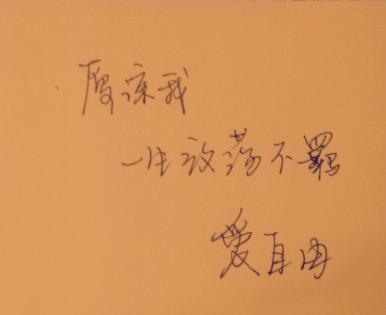 原谅我
一生放荡不羁
爱自由